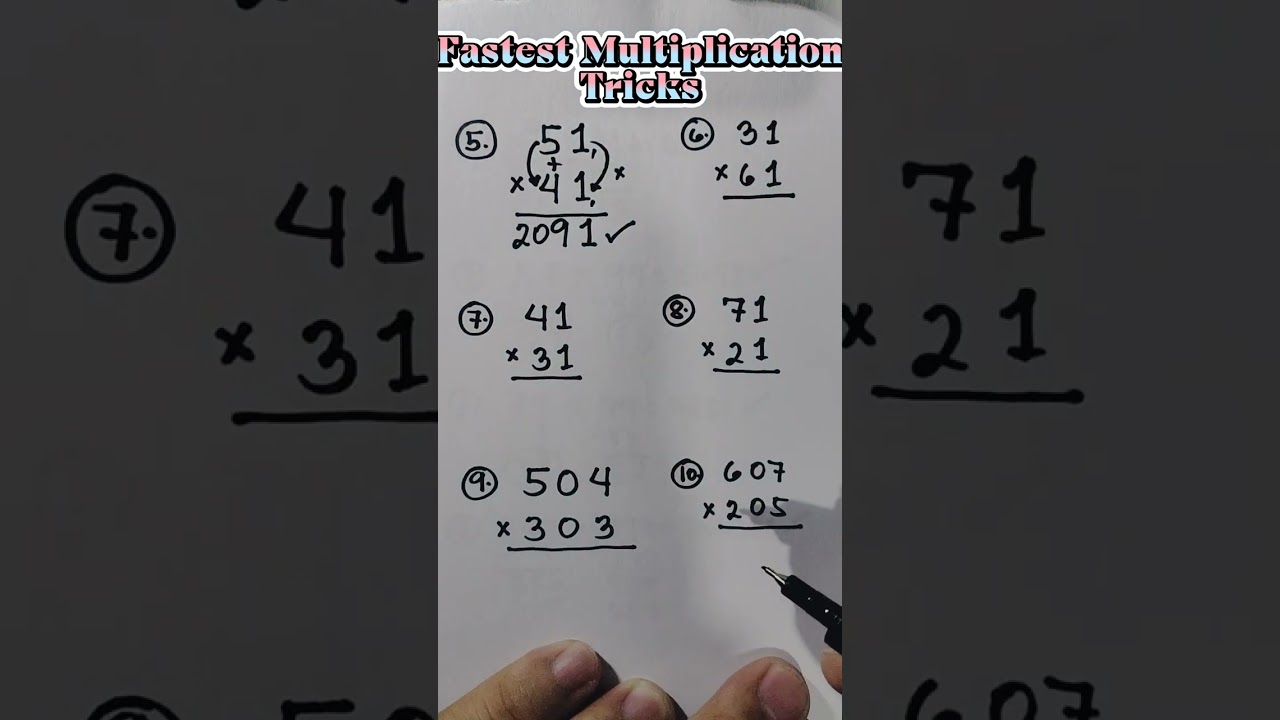 Fastest Multiplication
Tricks
5. 51,
+
× 41, ×
2091 ✓
6. 31
× 61
7. 41
× 31
8. 71
× 21
9. 504
× 303
10. 607
× 205
7. 41
× 31
71
× 21
607